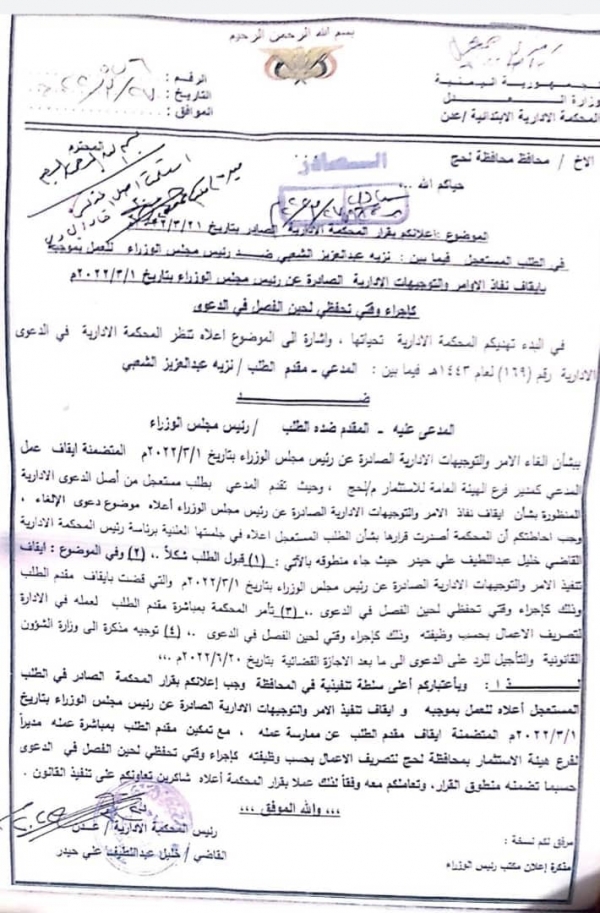 بسم الله الرحمن الرحيم
الجمهورية اليمنية
وزارة العدل
المحكمة الادارية الابتدائية /عدن
الرقم :
التاريخ :
الموافق :
الاخ / محافظ محافظة لحج
المحترم
حياكم الله ...
الصادر
الموضوع :اعلانكم بقرار المحكمة الادارية الصادر بتاريخ ٢٠٢٢/٣/٢١م
في الطلب المستعجل فيما بين : نزيه عبدالعزيز الشعبي ضد رئيس مجلس الوزراء للعمل بموجبه
بايقاف نفاذ الاوامر والتوجيهات الادارية الصادرة عن رئيس مجلس الوزراء بتاريخ ٢٠٢٢/٣/١م
كإجراء وقتي تحفظي لحين الفصل في الدعوى
في البدء تهنيكم المحكمة الادارية تحياتها ، واشارة الى الموضوع اعلاه تنظر المحكمة الادارية في الدعوى
الادارية رقم (١٦٩) لعام ١٤٤٣هـ فيما بين : المدعي ـ مقدم الطلب / نزيه عبدالعزيز الشعبي
ضد
المدعى عليه - المقدم ضده الطلب / رئيس مجلس الوزراء
بشأن الغاء الامر والتوجيهات الادارية الصادرة عن رئيس مجلس الوزراء بتاريخ ٢٠٢٢/٣/١م المتضمنة ايقاف عمل
المدعي كمدير فرع الهيئة العامة للاستثمار م/لحج ، وحيث تقدم المدعي بطلب مستعجل من أصل الدعوى الادارية
المنظورة بشأن ايقاف نفاذ الامر والتوجيهات الادارية الصادرة عن رئيس مجلس الوزراء أعلاه موضوع دعوى الإلغاء ،
وجب احاطتكم أن المحكمة أصدرت قرارها بشأن الطلب المستعجل اعلاه في جلستها العلنية برئاسة رئيس المحكمة الادارية
القاضي خليل عبداللطيف علي حيدر حيث جاء منطوقه بالآتي : (١) قبول الطلب شكلاً .، (٢) وفي الموضوع : ايقاف
تنفيذ الامر والتوجيهات الادارية الصادرة عن رئيس مجلس الوزراء بتاريخ ٢٠٢٢/٣/١م والتي قضت بايقاف مقدم الطلب
وذلك كإجراء وقتي تحفظي لحين الفصل في الدعوى .، (٣) تأمر المحكمة بمباشرة مقدم الطلب لعمله في الادارة
لتصريف الاعمال بحسب وظيفته وذلك كإجراء وقتي لحين الفصل في الدعوى .، (٤) توجيه مذكرة الى وزارة الشؤون
القانونية والتأجيل للرد على الدعوى الى ما بعد الاجازة القضائية بتاريخ ٢٠٢٢/٦/٢٠م ،،،
لـــذا : وبأعتباركم أعلى سلطة تنفيذية في المحافظة وجب إعلانكم بقرار المحكمة الصادر في الطلب
المستعجل أعلاه للعمل بموجبه و ايقاف تنفيذ الامر والتوجيهات الادارية الصادرة عن رئيس مجلس الوزراء بتاريخ
٢٠٢٢/٣/١م المتضمنة ايقاف مقدم الطلب عن ممارسة عمله ، مع تمكين مقدم الطلب بمباشرة عمله مديراً
لفرع هيئة الاستثمار بمحافظة لحج لتصريف الاعمال بحسب وظيفته كإجراء وقتي تحفظي لحين الفصل في الدعوى
حسبما تضمنه منطوق القرار، وتعاملكم معه وفقاً لذلك عملا بقرار المحكمة أعلاه شاكرين تعاونكم على تنفيذ القانون .
،،، والله الموفق ،،،
رئيس المحكمة الادارية / عدن
القاضي / خليل عبداللطيف علي حيدر
مرفق لكم نسخة :
مذكرة إعلان مكتب رئيس الوزراء